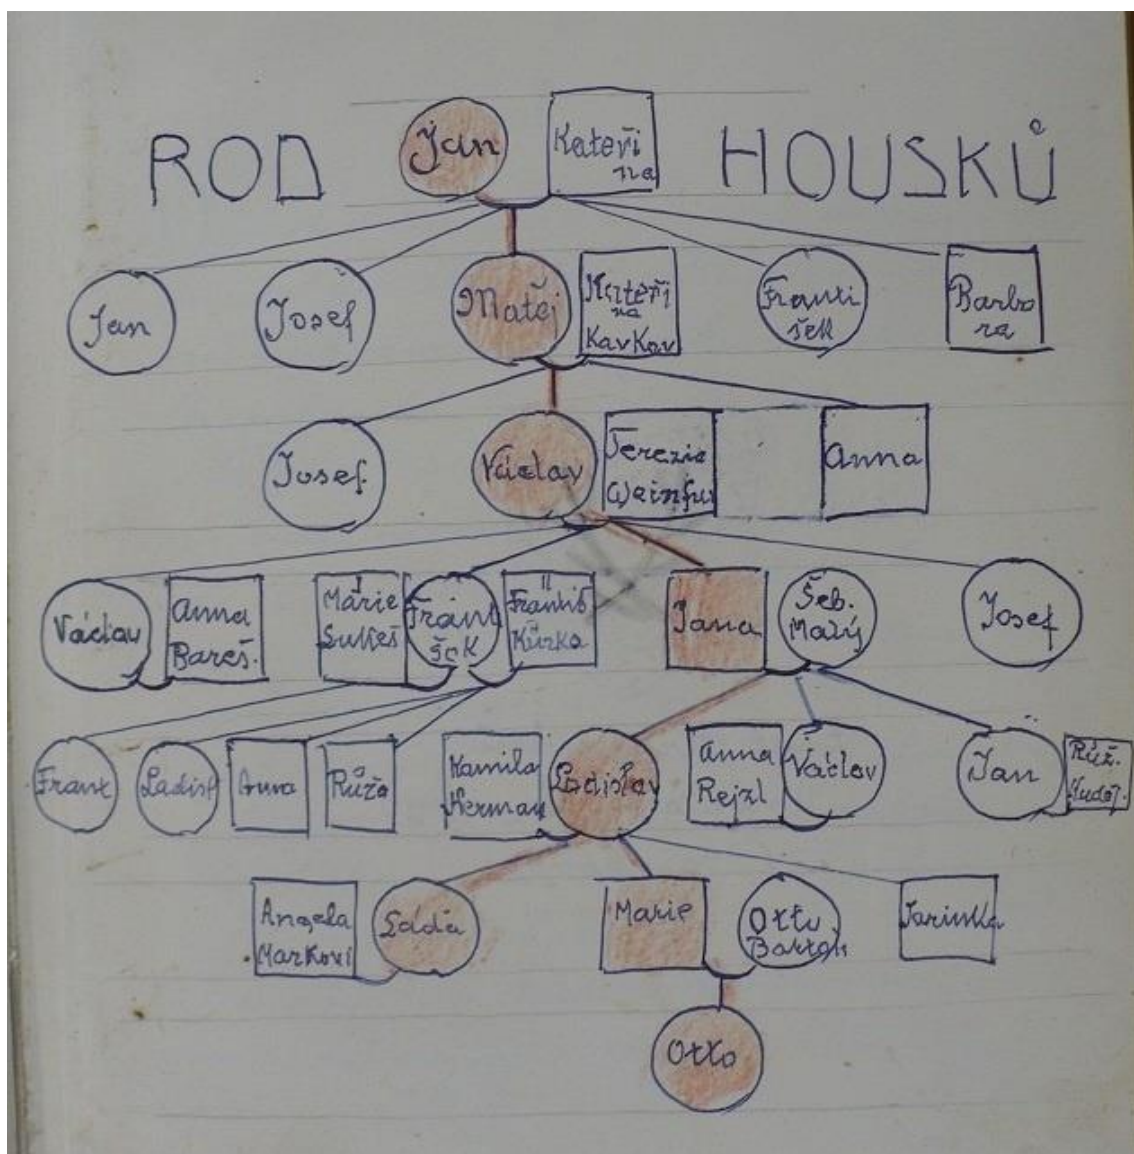 ROD
Jan
Kateři
na
HOUSKŮ
Jan
Josef
Matěj
Kateři
na
KavKov
Franti
šek
Barbo
ra
Josef
Václav
Terezie
Anna
Václav
Anna
Bareš.
Marie
Frant
šek
Kůrka
Jana
Šeb.
Malý
Josef
Frant
Ladisl
Anna
Růža
Kamila
Herman
Ladislav
Anna
Rejzl
Václav
Jan
Růž.
Angela
Markovi
Láďa
Marie
Otto
Jarinka
Otto